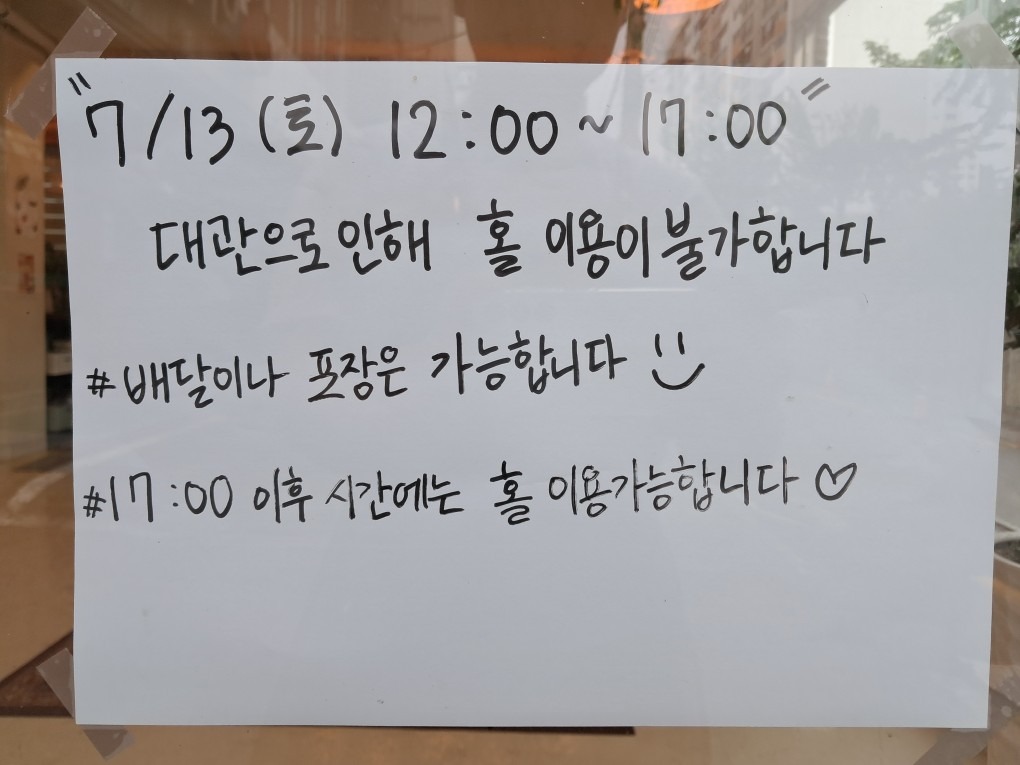 "7/13 (토) 12:00 ~ 17:00"
대관으로 인해 홀 이용이 불가합니다
#배달이나 포장은 가능합니다 :)
#17:00 이후 시간에는 홀 이용가능합니다 ♡